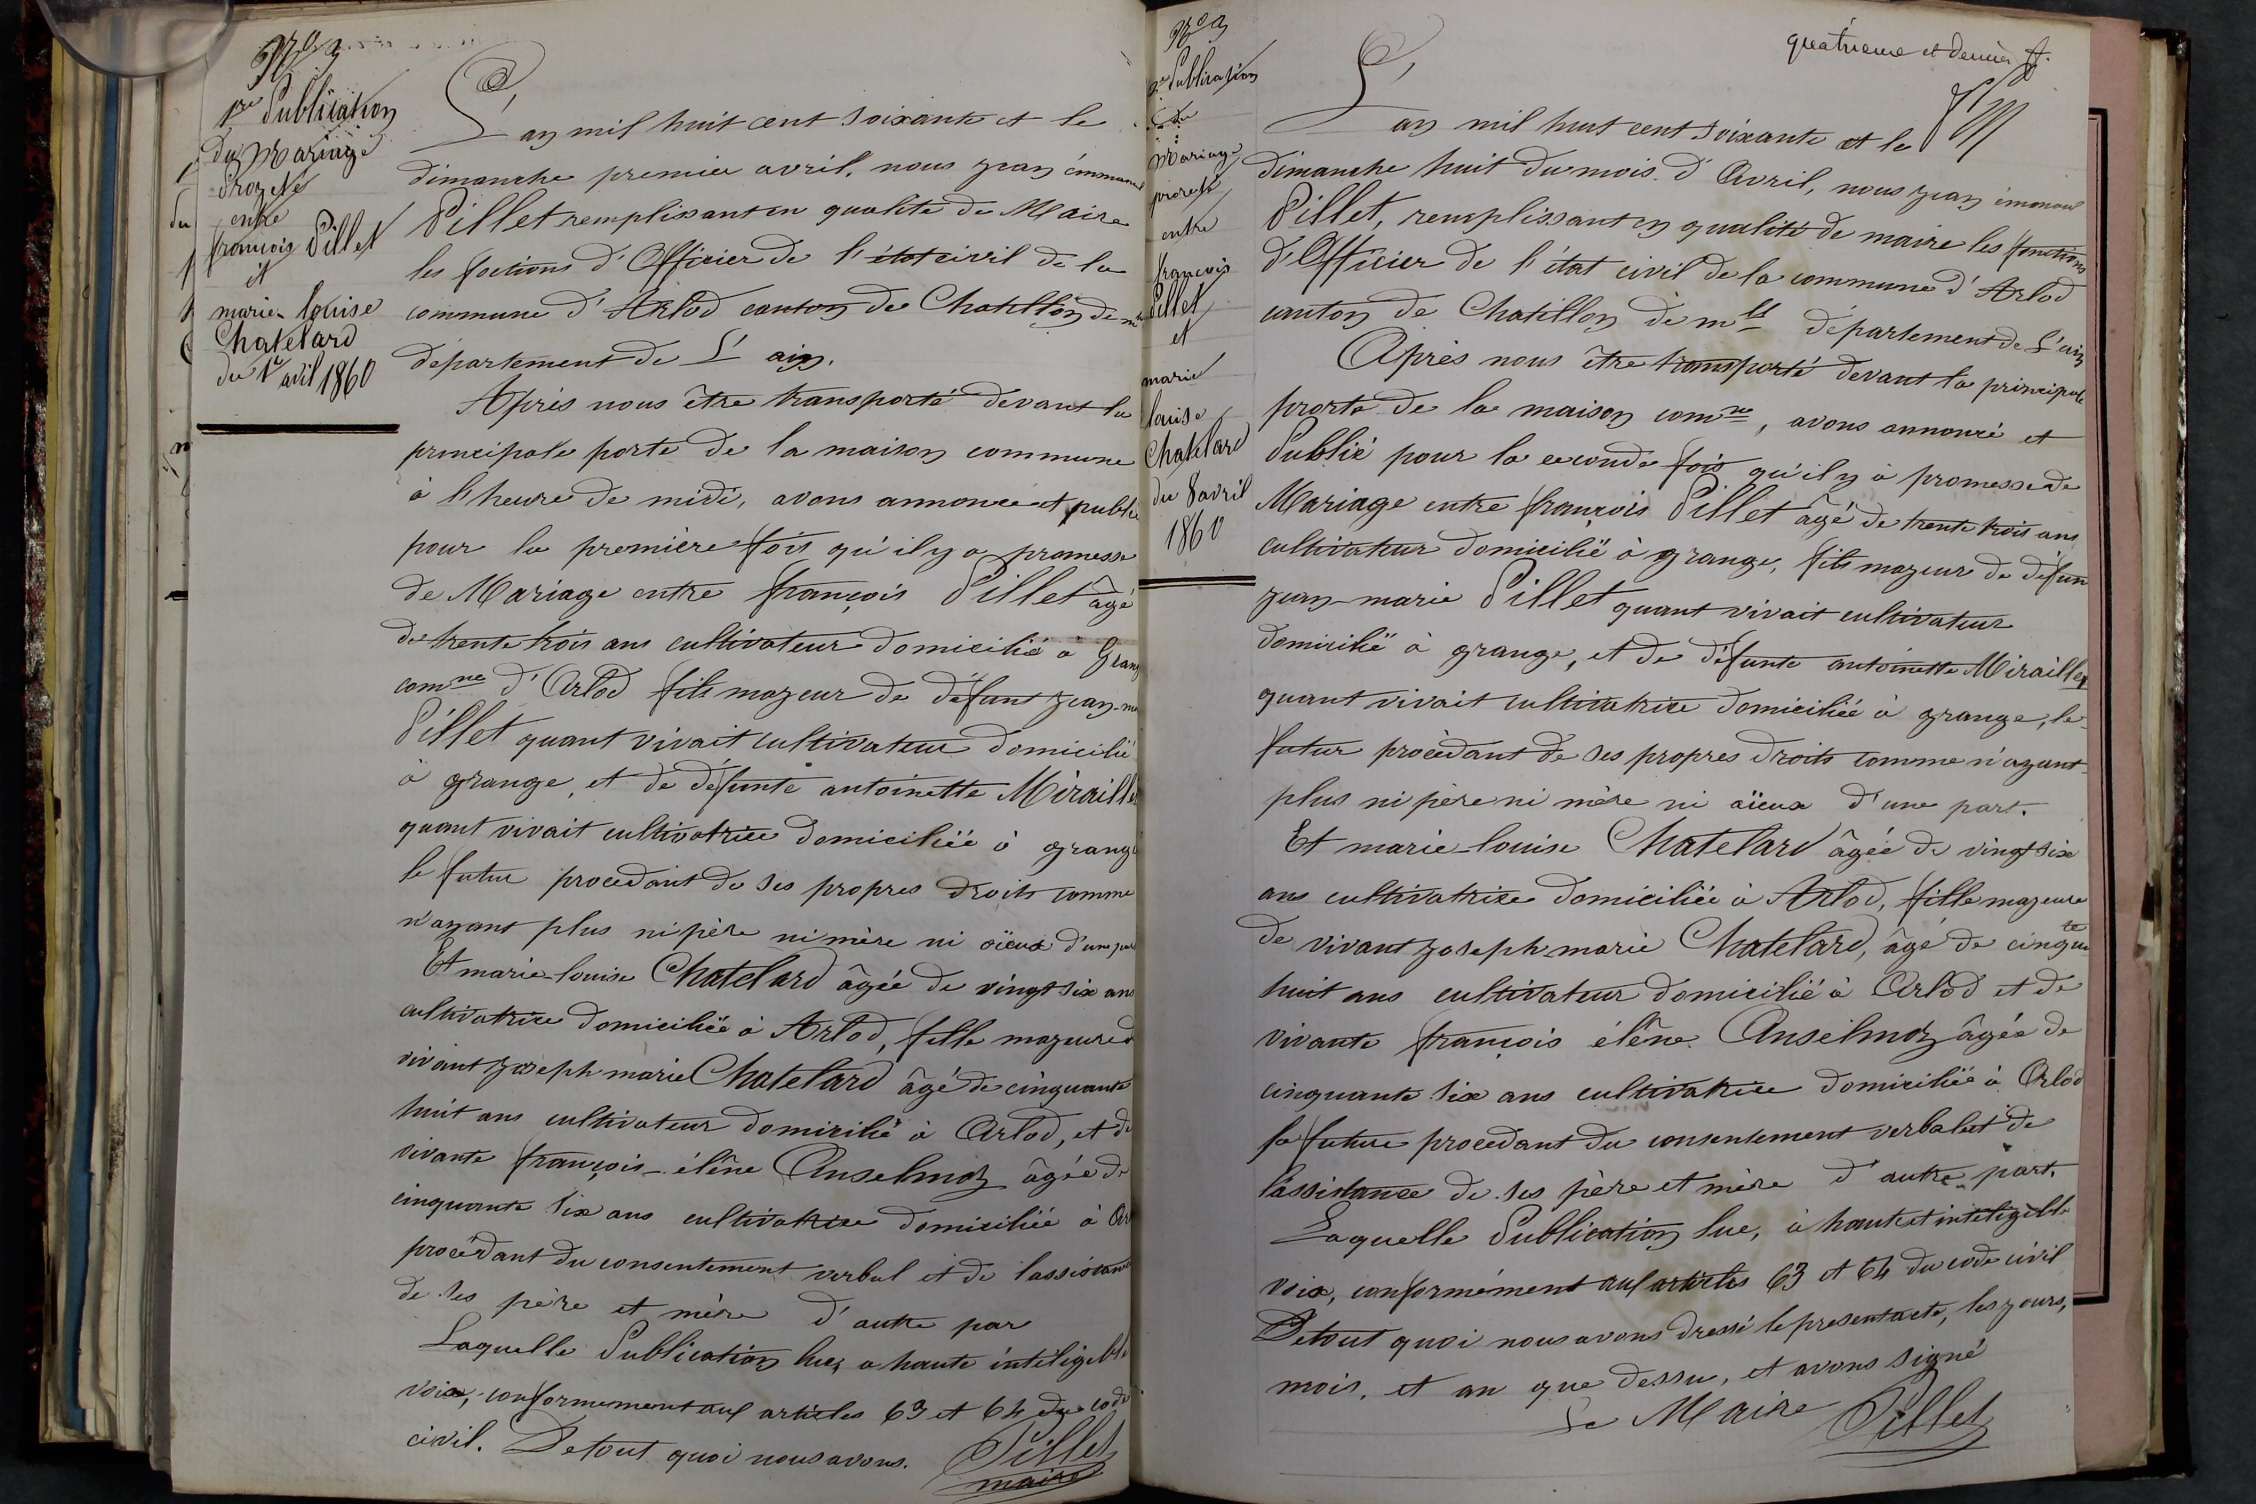 N° 9
1re Publication
du Mariage
Projeté
entre
françois Pillet
et
marie-louise
Chatelard
du 1er avil 1860
L'an mil huit cent soixante et le
dimanche premier avril, nous jean émmanuel
Pillet remplissant en qualité de Maire
les foctions d'Officier de l'état civil de la
commune d'Arlod canton de Chatillon de mlle
département de L'ain.
Après nous être transporté devant la
principale porte de la maison commune
à l'heure de midi, avons annoncé et publié
pour la première fois qu'il y a promesse
de Mariage entre françois Pillet âgé
de trente trois ans cultivateur domicilié à Grang
comne d'Arlod fils majeur de défunt jean-ma
Pillet quant vivait cultivateur domicilié
à grange, et de défunte antoinette Mirailler
quant vivait cultivatrice domiciliéé à grange
le futur procedant de ses propres droits comme
n'ayant plus ni père ni mère ni aïeux d'une part
Et marie-louise Chatelard âgée de vingt six ans
cultivatrice domiciliée à Arlod, fille majeure d
vivant joseph marie Chatelard âgé de cinquante
huit ans cultivateur domicilié à Arlod, et de
vivante françois-élêne Anselmoz âgée de
cinquante six ans cultivatrice domiciliéé à Arl
procédant du consentement verbal et de lassistance
de ses père et mère d'autre par
Laquelle Publication lue, a haute inteligible
voix, conformement aux articles 63 et 64 du code
civil. De tout quoi nous avons. Pillet
maire
N° 9
2e Publication
de
Mariage
projeté
entre
françois
Pillet
et
marie
louise
Chatelard
du 8 avril
1860
quatrieme et dernier f.
L'an mil huit cent soixante et le
dimanche huit du mois d'Avril, nous jean émmanuel
Pillet, remplissant en qualité de maire les fonctions
d'Officier de l'état civil de la commune d'Arlod
canton de Chatillon de mlle département de L'ain
Après nous être transporté devant la principale
prorte de la maison comne, avons annoncé et
Publié pour la seconde fois qu'il y à promesse de
Mariage entre françois Pillet âgé de trente trois ans
cultivateur domicilié à grange, fils majeur de défun
jean-marie Pillet quant vivait cultivateur
domicilié à grange, et de défunte antoinette Mirailler
quant vivait cultivatrice domiciliéé à grange, le
futur procèdant de ses propres droits comme n'ayant
plus ni père ni mère ni aïeux d'une part.
Et marie-louise Chatelard âgéé de vingt six
ans cultivatrice domiciliée à Arlod, fille majeure
de vivant joseph marie Chatelard, âgé de cinquate
huit ans cultivateur domicilié à Arlod et de
vivante françois élêne Anselmoz âgée de
cinquante six ans cultivatrice domiciliée à Arlod
la future procedant du consentement verbal et de
l'assistance de ses père et mère d'autre part.
Laquelle Publication lue, à haute et inteligible
voix, conformément aux articles 63 et 64 du code civil
De tout quoi nous avons dressé le present acte, les jours,
mois, et an que dessu, et avons signé
Le Maire Pillet